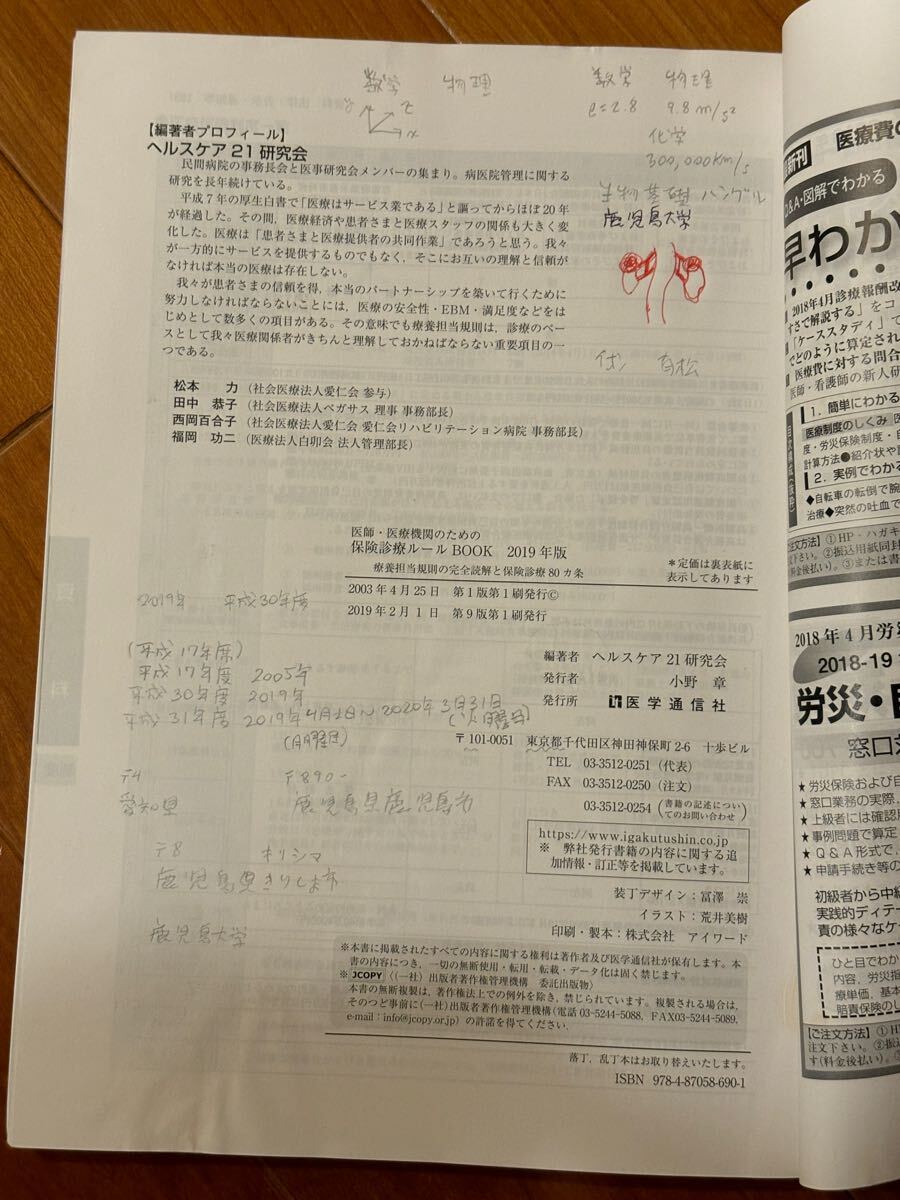 数学 物理 数学 物理
y z x e=2.8 9.8 m/s²
化学
300,000km/s
生物基礎 ハングル
鹿児島大学
【編著者プロフィール】
ヘルスケア 21 研究会
民間病院の事務長会と医事研究会メンバーの集まり。病医院管理に関する
研究を長年続けている。
平成 7 年の厚生白書で「医療はサービス業である」と謳ってからほぼ 20 年
が経過した。その間，医療経済や患者さまと医療スタッフの関係も大きく変
化した。医療は「患者さまと医療提供者の共同作業」であろうと思う。我々
が一方的にサービスを提供するものでもなく，そこにお互いの理解と信頼が
なければ本当の医療は存在しない。
我々が患者さまの信頼を得，本当のパートナーシップを築いて行くために
努力しなければならないことには，医療の安全性・EBM・満足度などをは
じめとして数多くの項目がある。その意味でも療養担当規則は，診療のベー
スとして我々医療関係者がきちんと理解しておかねばならない重要項目の一
つである。
有松
松本 力（社会医療法人愛仁会 参与）
田中 恭子（社会医療法人ペガサス 理事 事務部長）
西岡百合子（社会医療法人愛仁会 愛仁会リハビリテーション病院 事務部長）
福岡 功二（医療法人白卯会 法人管理部長）
医師・医療機関のための
保険診療ルール BOOK 2019 年版
療養担当規則の完全読解と保険診療 80 カ条
＊定価は裏表紙に
表示してあります
2003 年 4 月 25 日 第 1 版第 1 刷発行©
2019 年 2 月 1 日 第 9 版第 1 刷発行
2019年 平成30年度
(平成17年度)
平成17年度 2005年
平成30年度 2019年
平成31年度 2019年4月1日〜2020年3月31日
(月曜日) (火曜日)
編著者 ヘルスケア 21 研究会
発行者 小野 章
発行所 医学通信社
〒101-0051 東京都千代田区神田神保町 2-6 十歩ビル
TEL 03-3512-0251（代表）
FAX 03-3512-0250（注文）
03-3512-0254（書籍の記述につい
てのお問い合わせ）
〒4 〒890-
愛知県 鹿児島県鹿児島市
〒8 キリシマ
鹿児島県きりしま市
鹿児島大学
https://www.igakutushin.co.jp
※ 弊社発行書籍の内容に関する追
加情報・訂正等を掲載しています。
装丁デザイン：冨澤 崇
イラスト：荒井美樹
印刷・製本：株式会社 アイワード
※本書に掲載されたすべての内容に関する権利は著作者及び医学通信社が保有します。本
書の内容につき，一切の無断使用・転用・転載・データ化は固く禁じます。
※ JCOPY 〈（一社）出版者著作権管理機構 委託出版物〉
本書の無断複製は，著作権法上での例外を除き，禁じられています。複製される場合は，
そのつど事前に（一社）出版者著作権管理機構（電話 03-5244-5088，FAX03-5244-5089，
e-mail：info@jcopy.or.jp）の許諾を得てください．
落丁，乱丁本はお取り替えいたします。
ISBN 978-4-87058-690-1
新刊 医療費の
Q&A・図解でわかる
早わか
2018年4月診療報酬改
すさで解説する」をコ
「ケーススタディ」で
でどのように算定され
医療費に対する問合
医師・看護師の新人研
1．簡単にわかる
医療制度のしくみ 医
度・労災保険制度・自
計算方法●紹介状や
2．実例でわか
◆自転車の転倒で腕
治療◆突然の吐血で
【ご注文方法】①HP・ハガキ
注文下さい。②振込用紙同封
（料金後払い）。③または書
2018 年 4 月労災
2018-19
労災・
窓口
★労災保険および自
★窓口業務の実際，
★上級者には確認用
★事例問題で算定
★Q & A 形式で，
★申請手続き等の
初級者から中級
実践的ディテー
責の様々なケー
ひと目でわか
内容，労災担
療単価，基本
賠責保険のし
【ご注文方法】①H
注文下さい。②振
す（料金後払い）。③